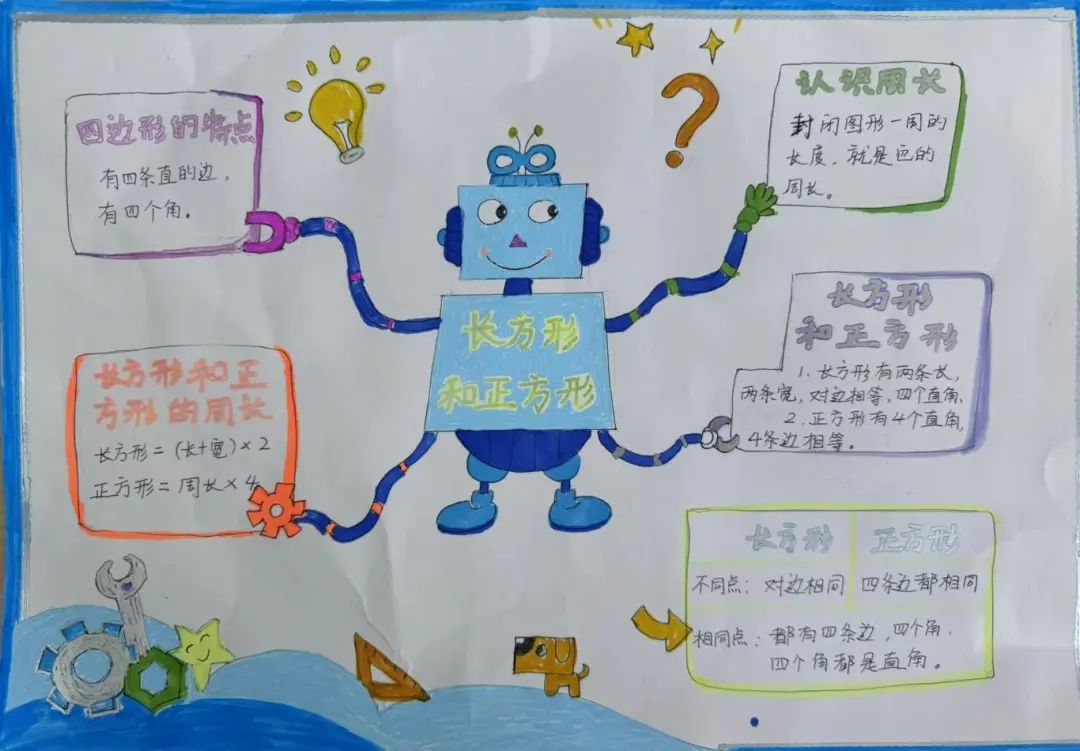 四边形的特点
有四条直的边,
有四个角。
认识周长
封闭图形一周的
长度,就是它的
周长。
长方形
和正方形
长方形
和正方形
1. 长方形有两条长,
两条宽,对边相等,四个直角、
2. 正方形有4个直角,
4条边相等。
长方形和正
方形的周长
长方形=(长+宽)×2
正方形=周长×4
长方形 正方形
不同点: 对边相同 四条边都相同
相同点: 都有四条边,四个角、
四个角都是直角。